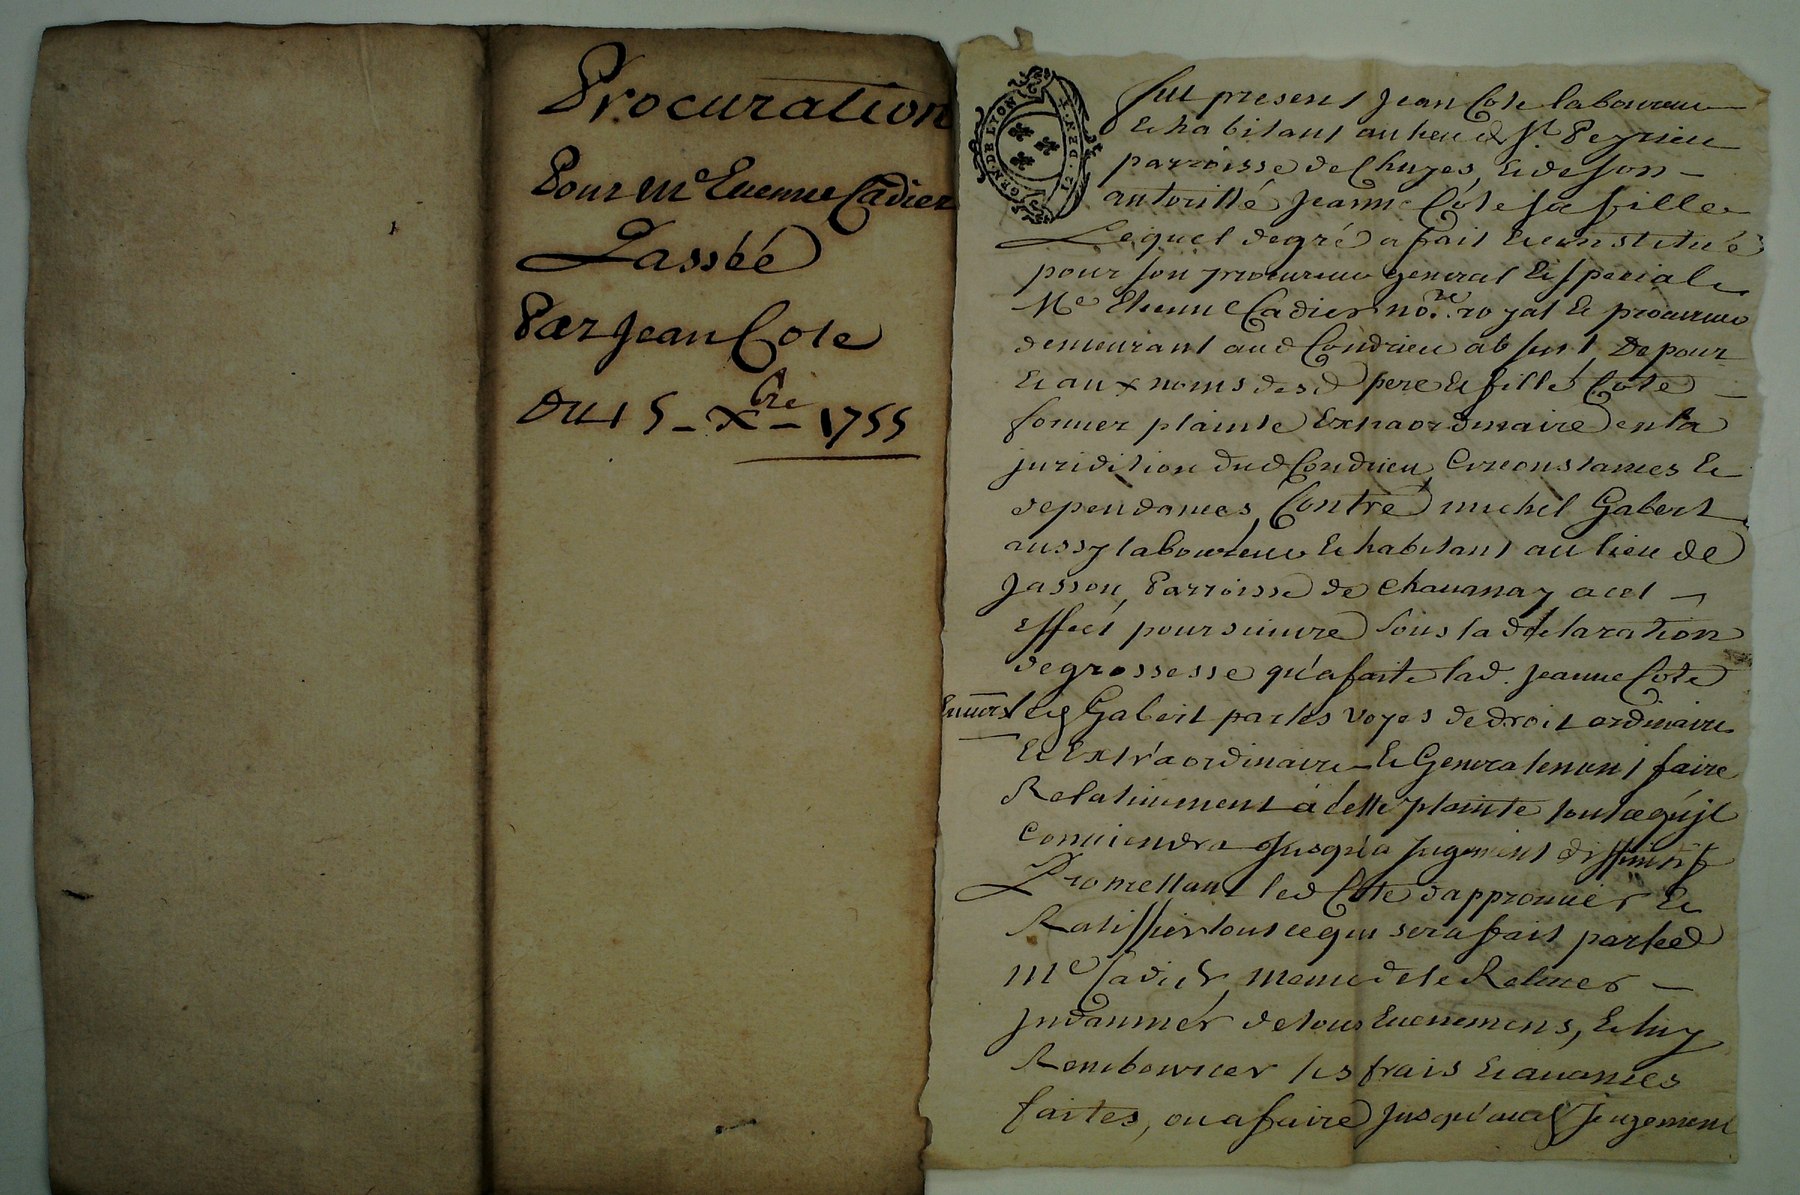 Procuration
Pour Me Etienne Cadier
Passéé
Par Jean Cote
Du 15 - Xbre - 1755
GEN. DE LYON
Fut present Jean Cote laboureur
& habitant au lieu de St Peyrieu
parroisse de Chuyes, & de son
autorité Jeanne Cote sa fille
Lequel de gré a fait & constitué
pour son procureur general & special
Me Etienne Cadier nore royal & procureur
demeurant aud Condrieu absent, De pour
& aux noms desd pere & fille Cote
former plainte Extraordinaire en la
juridition dud Condrieu, Circonstances &
dependances, Contre michel Gabert
aussy laboureur & habitant au lieu de
Jasson, Parroisse de Chauanay a cet
effect poursuiure sous la declaration
de grossesse qu'a faite lad. Jeanne Cote
Enuers led Gabert par les voyes de droit ordinaire
& Extraordinaire & Generalement faire
Relatiuement à cette plainte tout ce qu'jl
Conuiendra Jusqu'a Jugement diffinitif
Promettant led Cote d'approuuer &
Ratiffier tout ce qui sera fait par led
Me Cadier, meme de le Releuer
jndamner de tous Euenemens, & luy
Rembourcer les frais & auances
faites, ou a faire Jusqu'aud Jugement